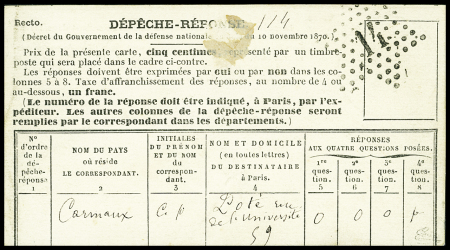 Recto.
DÉPÊCHE-RÉPONSE. 114
(Décret du Gouvernement de la défense nationale 10 novembre 1870.)
Prix de la présente carte, cinq centimes, représenté par un timbre-
poste qui sera placé dans le cadre ci-contre.
Les réponses doivent être exprimées par oui ou par non dans les co-
lonnes 5 à 8. Taxe d'affranchissement des réponses, au nombre de 4 ou
au-dessous, un franc.
(Le numéro de la réponse doit être indiqué, à Paris, par l'ex-
péditeur. Les autres colonnes de la dépêche-réponse seront
remplies par le correspondant dans les départements.)
N°
d'ordre
de la
dé-
pêche-
réponse
1
NOM DU PAYS
où réside
LE CORRESPONDANT.
2
INITIALES
DU PRÉNOM
ET DU NOM
du
correspon-
dant.
3
NOM ET DOMICILE
(en toutes lettres)
DU DESTINATAIRE
à Paris.
4
RÉPONSES
AUX QUATRE QUESTIONS POSÉES.
1re
ques-
tion.
5
2e
ques-
tion.
6
3e
ques-
tion.
7
4e
question.
8
Carmaux
C p
Doté rue
de l'université
59
0
0
0
p